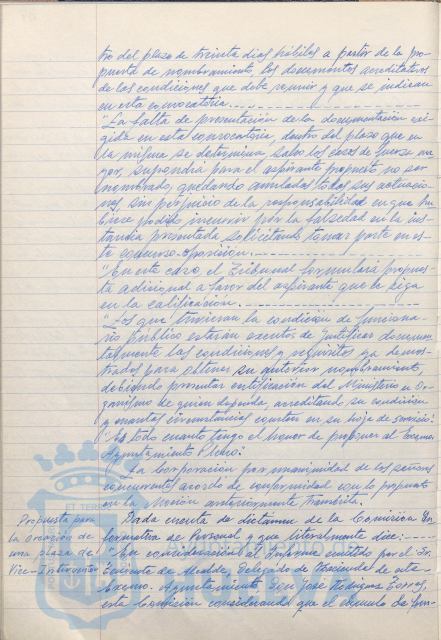 tro del plazo de treinta dias hábiles a partir de la pro-
puesta de nombramiento, los documentos acreditativos
de las condiciones que debe reunir y que se indican
en esta convocatoria.
"La falta de presentación de la documentación exi-
gida en esta convocatoria, dentro del plazo que en
la misma se determina, salvo los casos de fuerza ma-
yor, supondrá para el aspirante propuesto no ser
nombrado, quedando anuladas todas sus actuacio-
nes sin perjuicio de la responsabilidad en que hu-
biere podido incurrir por la falsedad en la ins-
tancia presentada solicitando tomar parte en es-
te concurso-oposición.
"En este caso el Tribunal formulará propues-
ta adicional a favor del aspirante que le siga
en la calificación.
"Los que tuvieran la condición de funciona-
rio público estarán exentos de justificar documen-
talmente las condiciones y requisitos ya demos-
trados para obtener su anterior nombramiento,
debiendo presentar certificación del Ministerio u Or-
ganismo de quien dependa, acreditando su condición
y cuantas circunstancias consten en su hoja de servicio.
"Es todo cuanto tengo el honor de proponer al Excmo.
Ayuntamiento Pleno."
La Corporación por unanimidad de los señores
concurrentes acordó de conformidad con lo propuesto
en la Moción anteriormente transcrita.
Propuesta para
la creación de
una plaza de
Vice-Interventor
Dada cuenta de dictamen de la Comisión In-
formativa de Personal y que literalmente dice:
"En consideración al Informe emitido por el Sr.
Teniente de Alcalde Delegado de Hacienda de este
Excmo. Ayuntamiento, Don José Rodríguez Torres,
esta Comisión considerando que el cúmulo de fun-